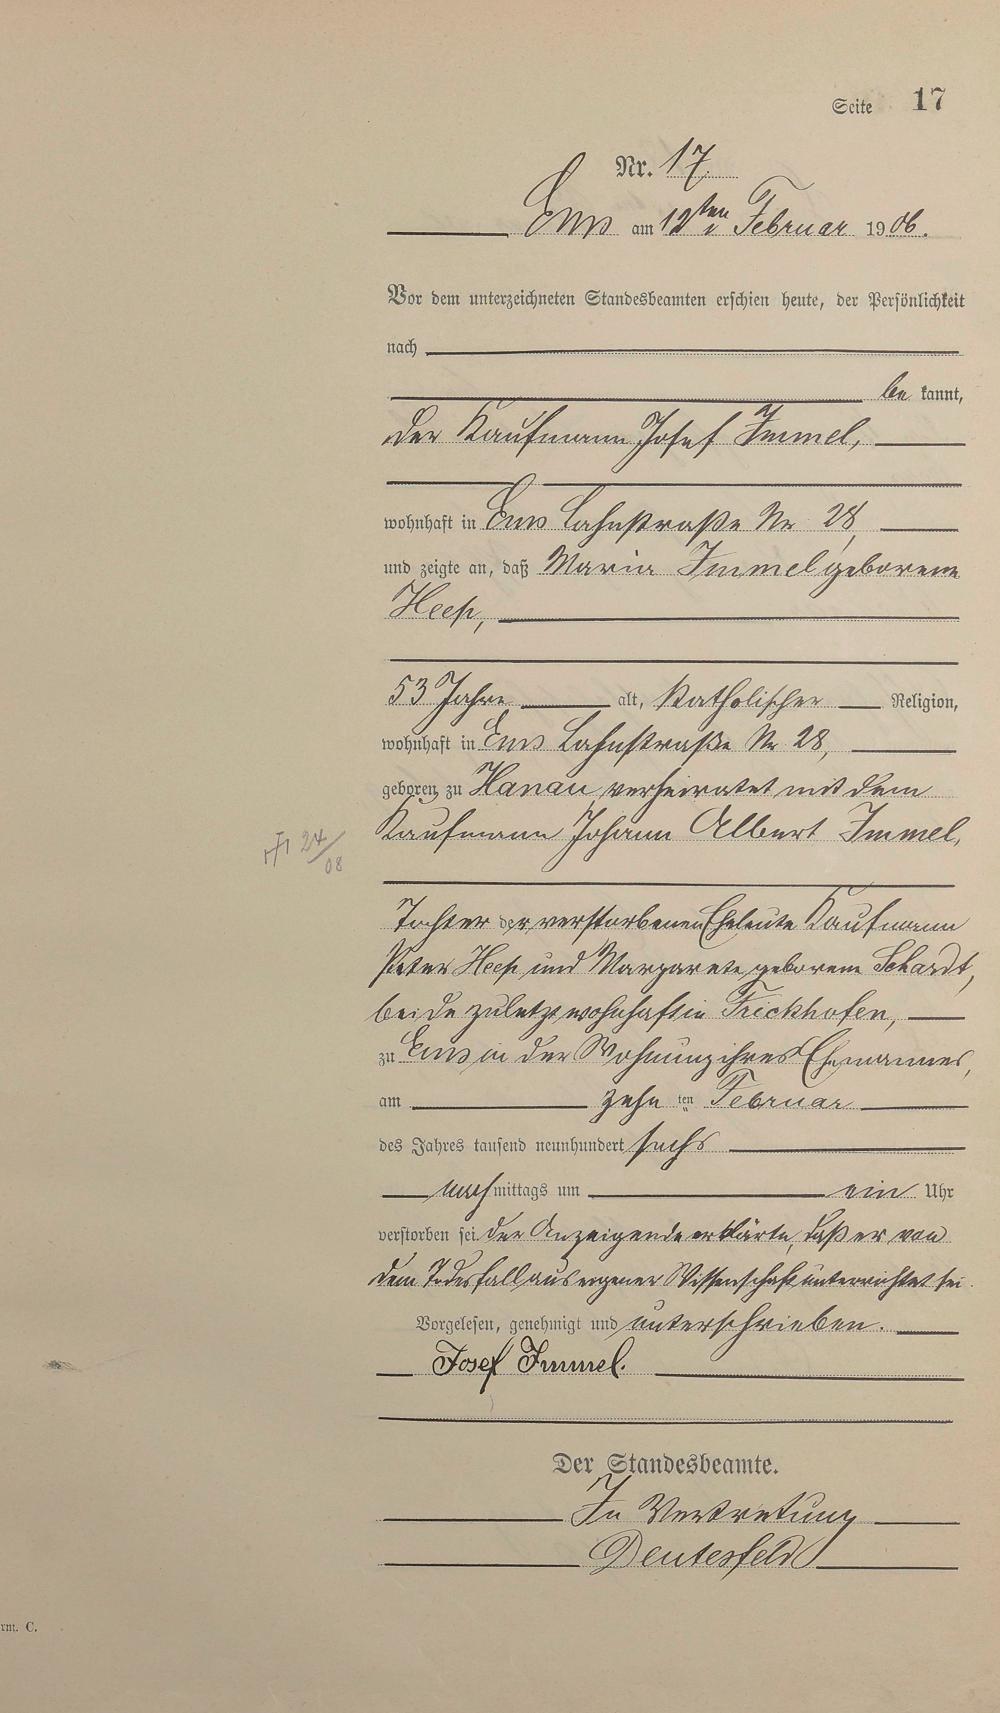 Seite 17
Nr. 17.
Ems am 12ten Februar 1906.
Vor dem unterzeichneten Standesbeamten erschien heute, der Persönlichkeit
nach
be kannt,
der Kaufmann Josef Immel,
wohnhaft in Ems Lahnstraße Nr 28,
und zeigte an, daß Maria Immel geborene
Heep,
53 Jahre alt, katholischer Religion,
wohnhaft in Ems Lahnstraße Nr 28,
geboren zu Hanau verheiratet mit dem
Kaufmann Johann Albert Immel,
24/08
Tochter der verstorbenen Eheleute Kaufmann
Peter Heep und Margarete geborene Schardt,
beide zuletzt wohnhaft in Frickhofen,
zu Ems in der Wohnung ihres Ehemannes,
am zehn ten Februar
des Jahres tausend neunhundert sechs
nachmittags um ein Uhr
verstorben sei. Der Anzeigende erklärte, daß er von
dem Todesfall aus eigener Wissenschaft unterrichtet sei.
Vorgelesen, genehmigt und unterschrieben.
Josef Immel.
Der Standesbeamte.
In Vertretung
Deutesfeld
rm. C.